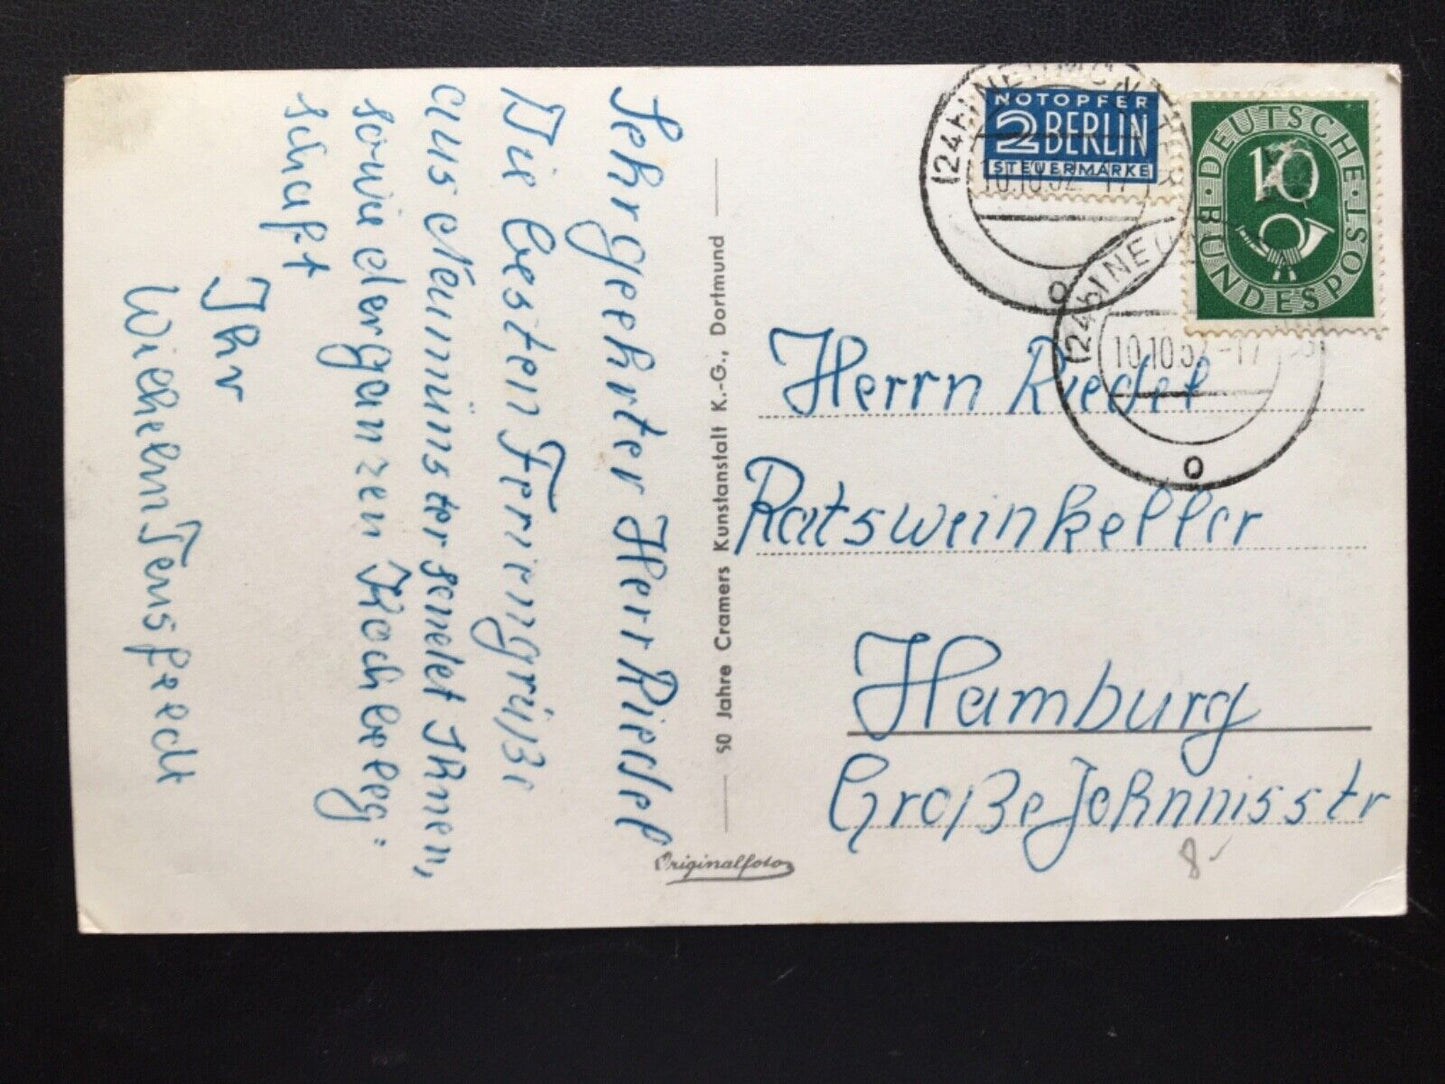 Sehr geehrter Herr Riedel
Die besten Feriengrüße
aus Neumünster sendet Ihnen,
sowie der ganzen Kochbeleg-
schaft
Ihr
Wilhelm
50 Jahre Cramers Kunstanstalt K.-G., Dortmund
Originalfoto
NOTOPFER
2 BERLIN
STEUERMARKE
DEUTSCHE BUNDESPOST
10
(24b) NEUMÜNSTER
10.10.52.-17
(24b) NE
10.10.52.-17
Herrn Riedel
Ratsweinkeller
Hamburg
Große Johnnisstr
8-